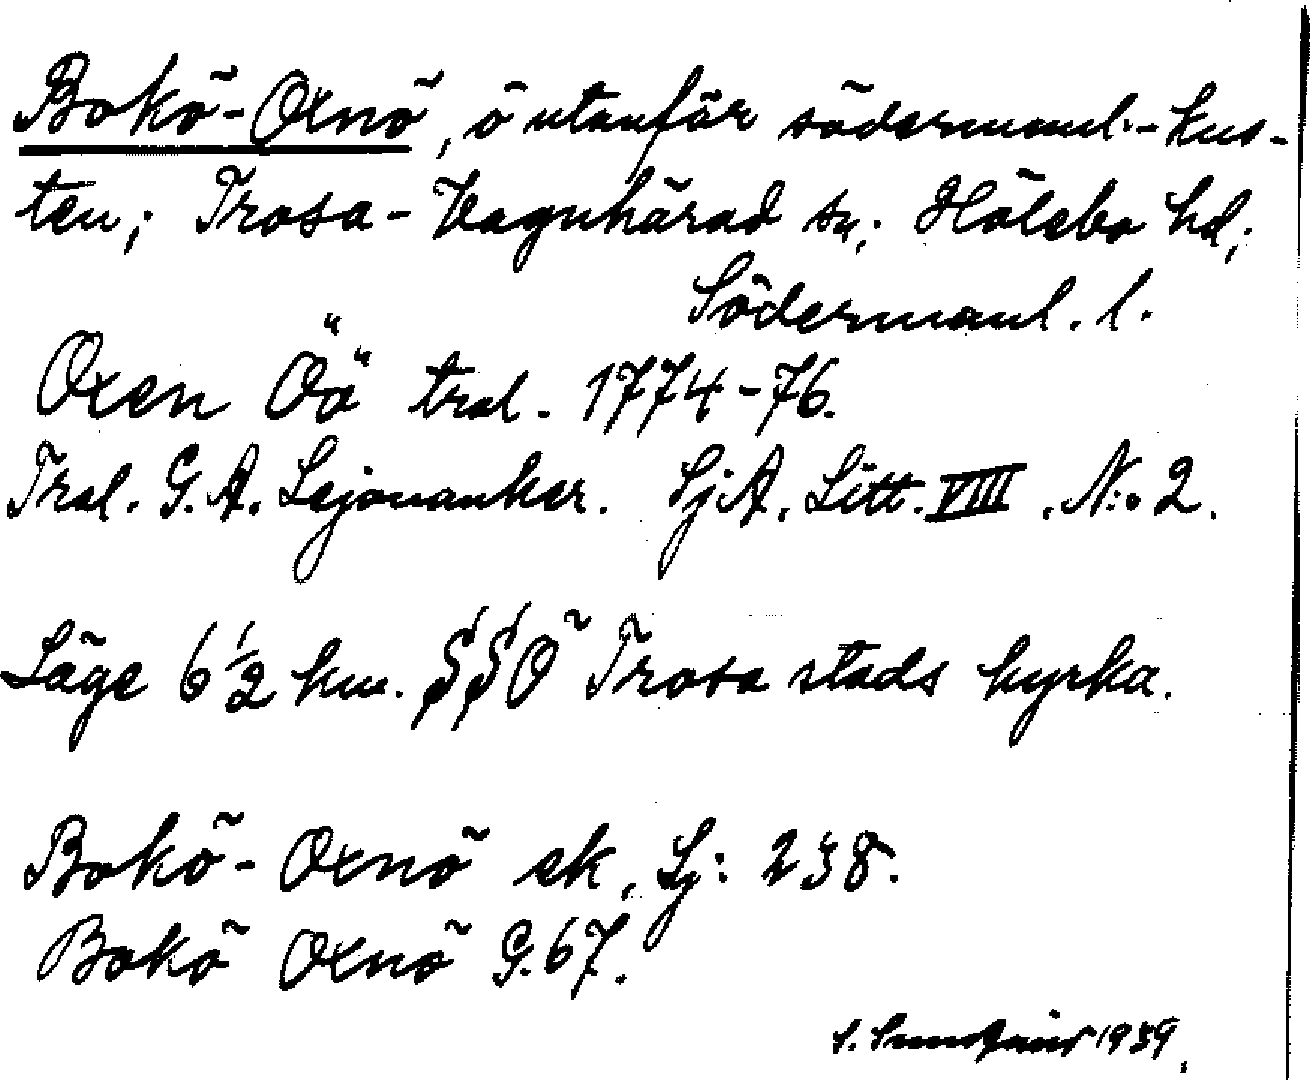 Bokö-Oxnö, ö utanför södermanl.-kus-
ten; Trosa-Vagnhärad sn; Hölebo hd;
Södermanl. l.
Oxen Öö tral. 1774-76.
Tral. G. A. Lejonanker. SjA. Litt. VIII. N:o 2.
Läge 6 1/2 km. SSO Trosa stads kyrka.
Bokö-Oxnö ek. Sj: 238.
Bokö Oxnö G. 67.
1939.